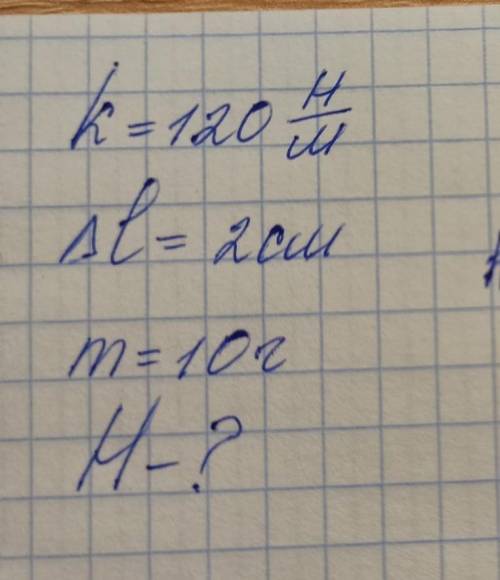 k = 120 Н/м
Δl = 2см
m = 10г
H - ?